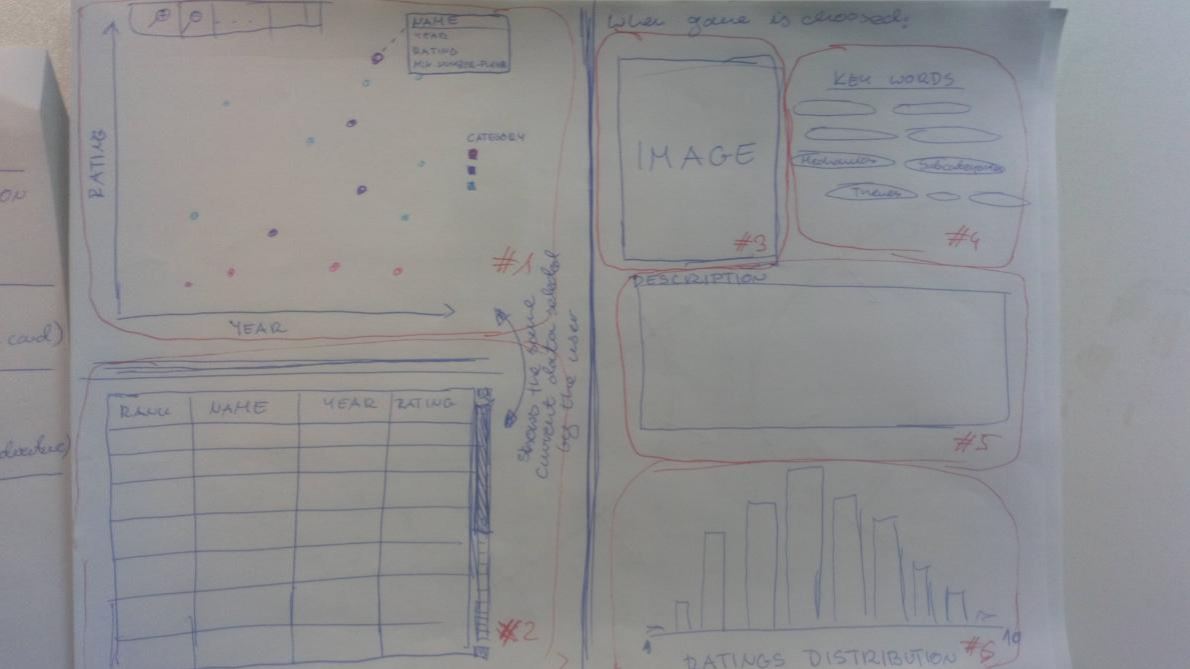 NAME
YEAR
RATING
RATING
CATEGORY
YEAR
#1
shows the same
current data selected
by the user
RANK NAME YEAR RATING
#2
When game is choosed:
IMAGE
#3
KEY WORDS
Mechanics Subcategories
Themes
#4
DESCRIPTION
#5
1 10
RATINGS DISTRIBUTION #6
ON
card)